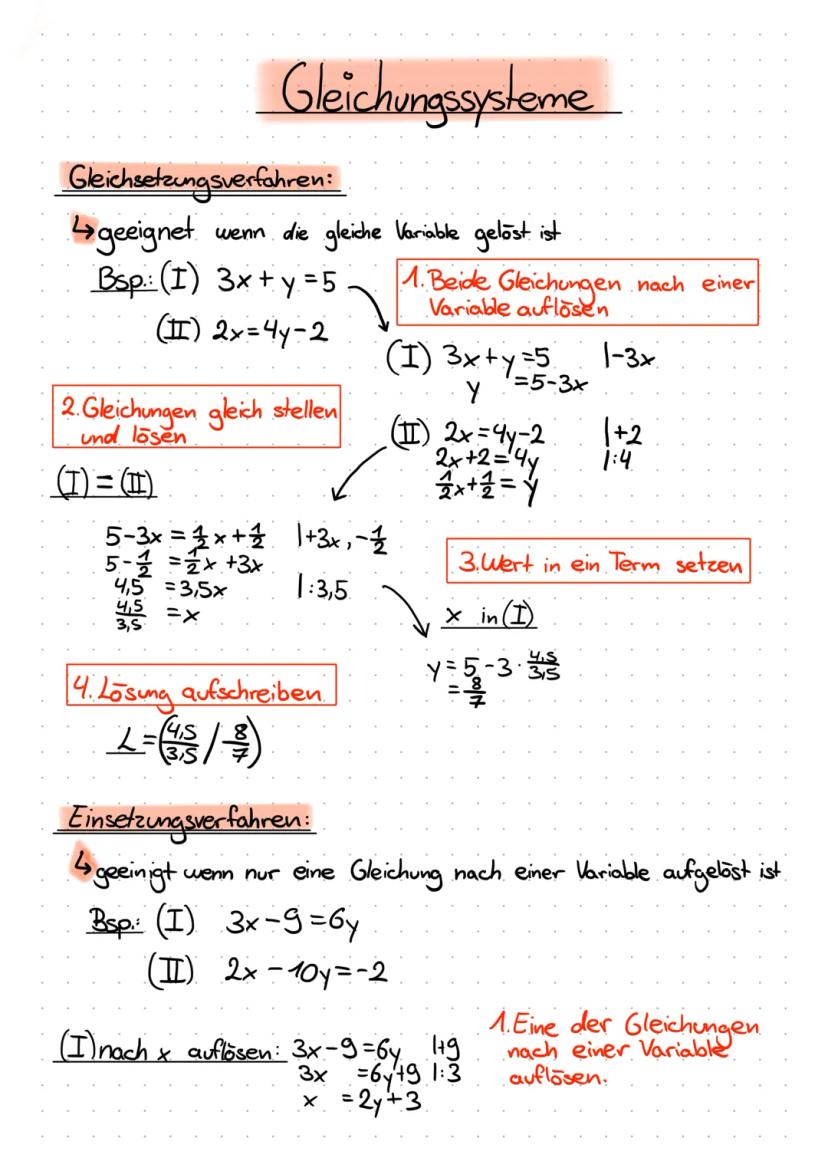 Gleichungssysteme
Gleichsetzungsverfahren:
↳ geeignet wenn die gleiche Variable gelöst ist
Bsp.: (I) 3x + y = 5
(II) 2x = 4y - 2
1. Beide Gleichungen nach einer
Variable auflösen
(I) 3x + y = 5 |-3x
y = 5 - 3x
(II) 2x = 4y - 2 |+2
2x + 2 = 4y |:4
1/2 x + 1/2 = y
2. Gleichungen gleich stellen
und lösen
(I) = (II)
5 - 3x = 1/2 x + 1/2 |+3x, -1/2
5 - 1/2 = 1/2 x + 3x
4,5 = 3,5x |:3,5
4,5/3,5 = x
3. Wert in ein Term setzen
x in (I)
y = 5 - 3 · 4,5/3,5
= 8/7
4. Lösung aufschreiben
L = (4,5/3,5 / 8/7)
Einsetzungsverfahren:
↳ geeinigt wenn nur eine Gleichung nach einer Variable aufgelöst ist
Bsp.: (I) 3x - 9 = 6y
(II) 2x - 10y = -2
(I) nach x auflösen: 3x - 9 = 6y |+9
3x = 6y + 9 |:3
x = 2y + 3
1. Eine der Gleichungen
nach einer Variable
auflösen.